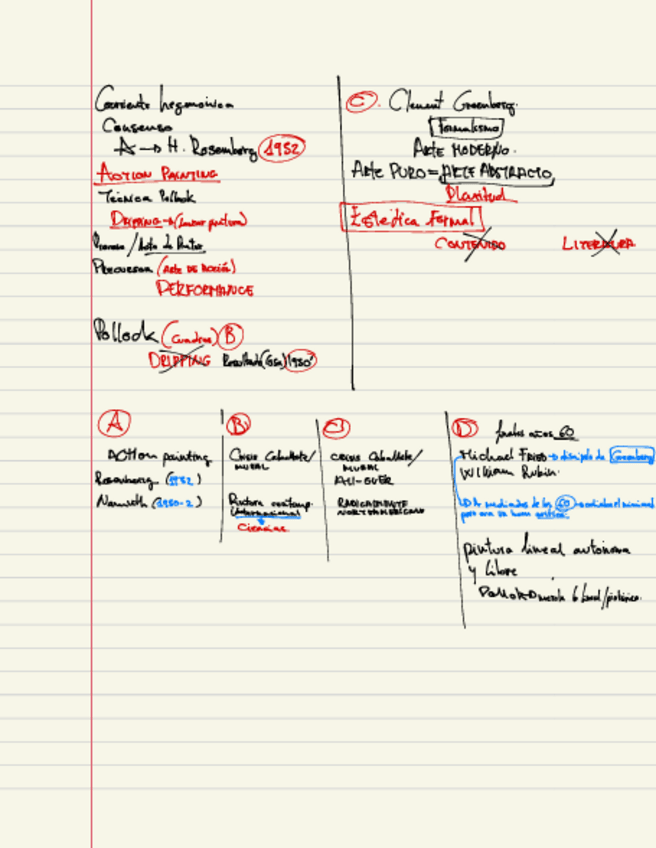 Corriente hegemónica
Consenso
A → H. Rosemberg 1952
ACTION PAINTING
Técnica Pollock
DRIPPING → (lanzar pintura)
Proceso / Acto de Pintar
Precursor (ARTE DE ACCIÓN)
PERFORMANCE
Pollock (cuadros) B
DRIPPING Resultado (50s) 1950
C. Clement Greenberg.
Formalismo
ARTE MODERNO.
ARTE PURO = ARTE ABSTRACTO
Planitud
Estética Formal
CONTENIDO LITERATURA
A
ACTION painting
Rosenberg (1952)
Namuth (1950-2)
B
Crisis Caballete/
MURAL
Pintura contemp.
Internacional
Ciencias
C
CRISIS Caballete/
MURAL
ALL-OVER
RADICALMENTE
NORTEAMERICANO
D finales años 60
Michael FRIED → discípulo de Greenberg
William Rubin.
mediados de los 60
pero era un buen
pintura lineal autónoma
y libre
Pollock mezcla lineal/pictórico.